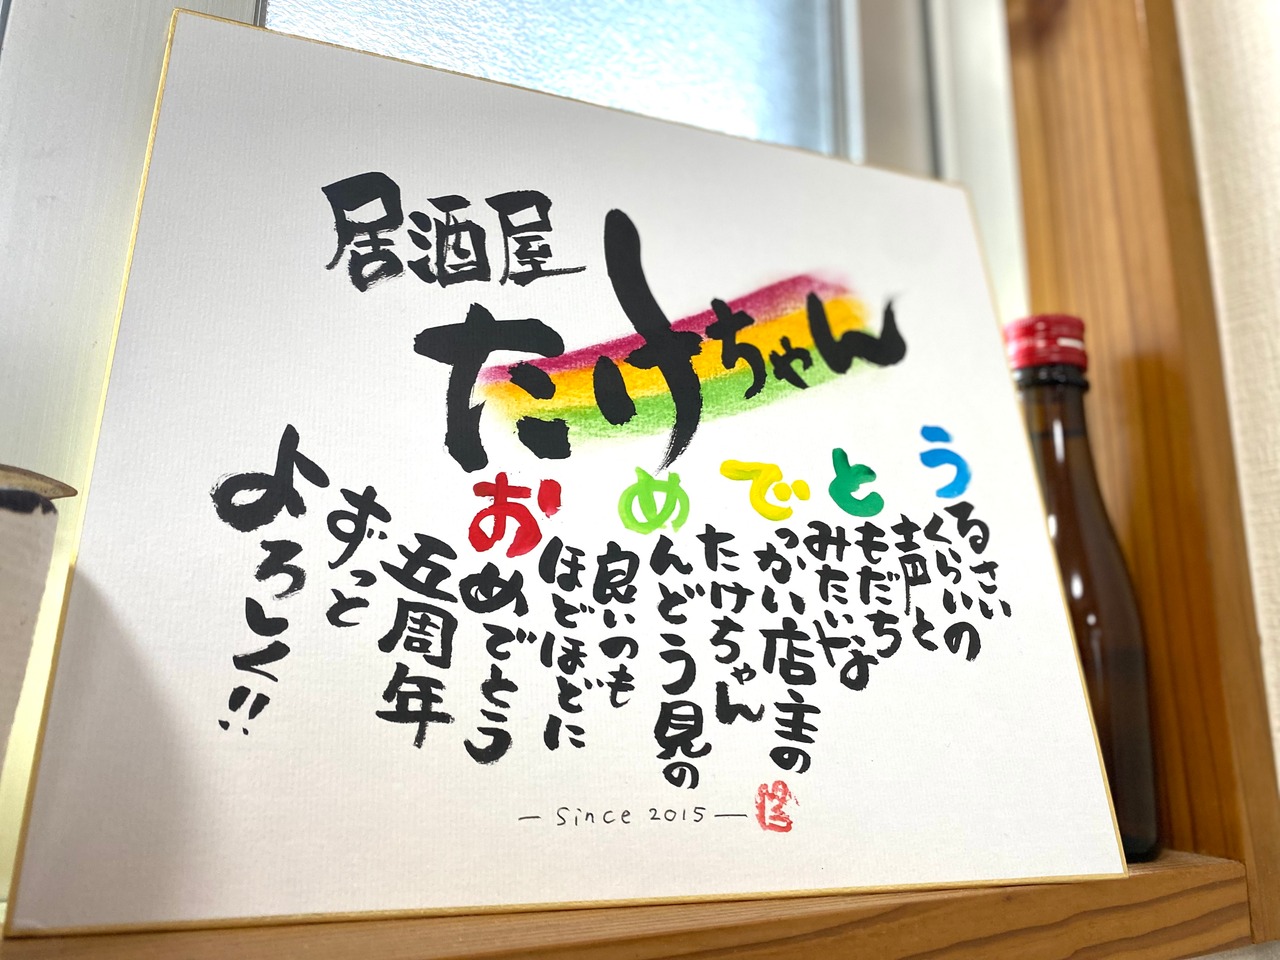 居酒屋
たけちゃん
うるさい
くらいの
声と
ともだち
みたいな
でっかい店主の
たけちゃん
めんどう見の
良いのも
ほどほどに
おめでとう
五周年
ずっと
よろしく!!
— Since 2015 —